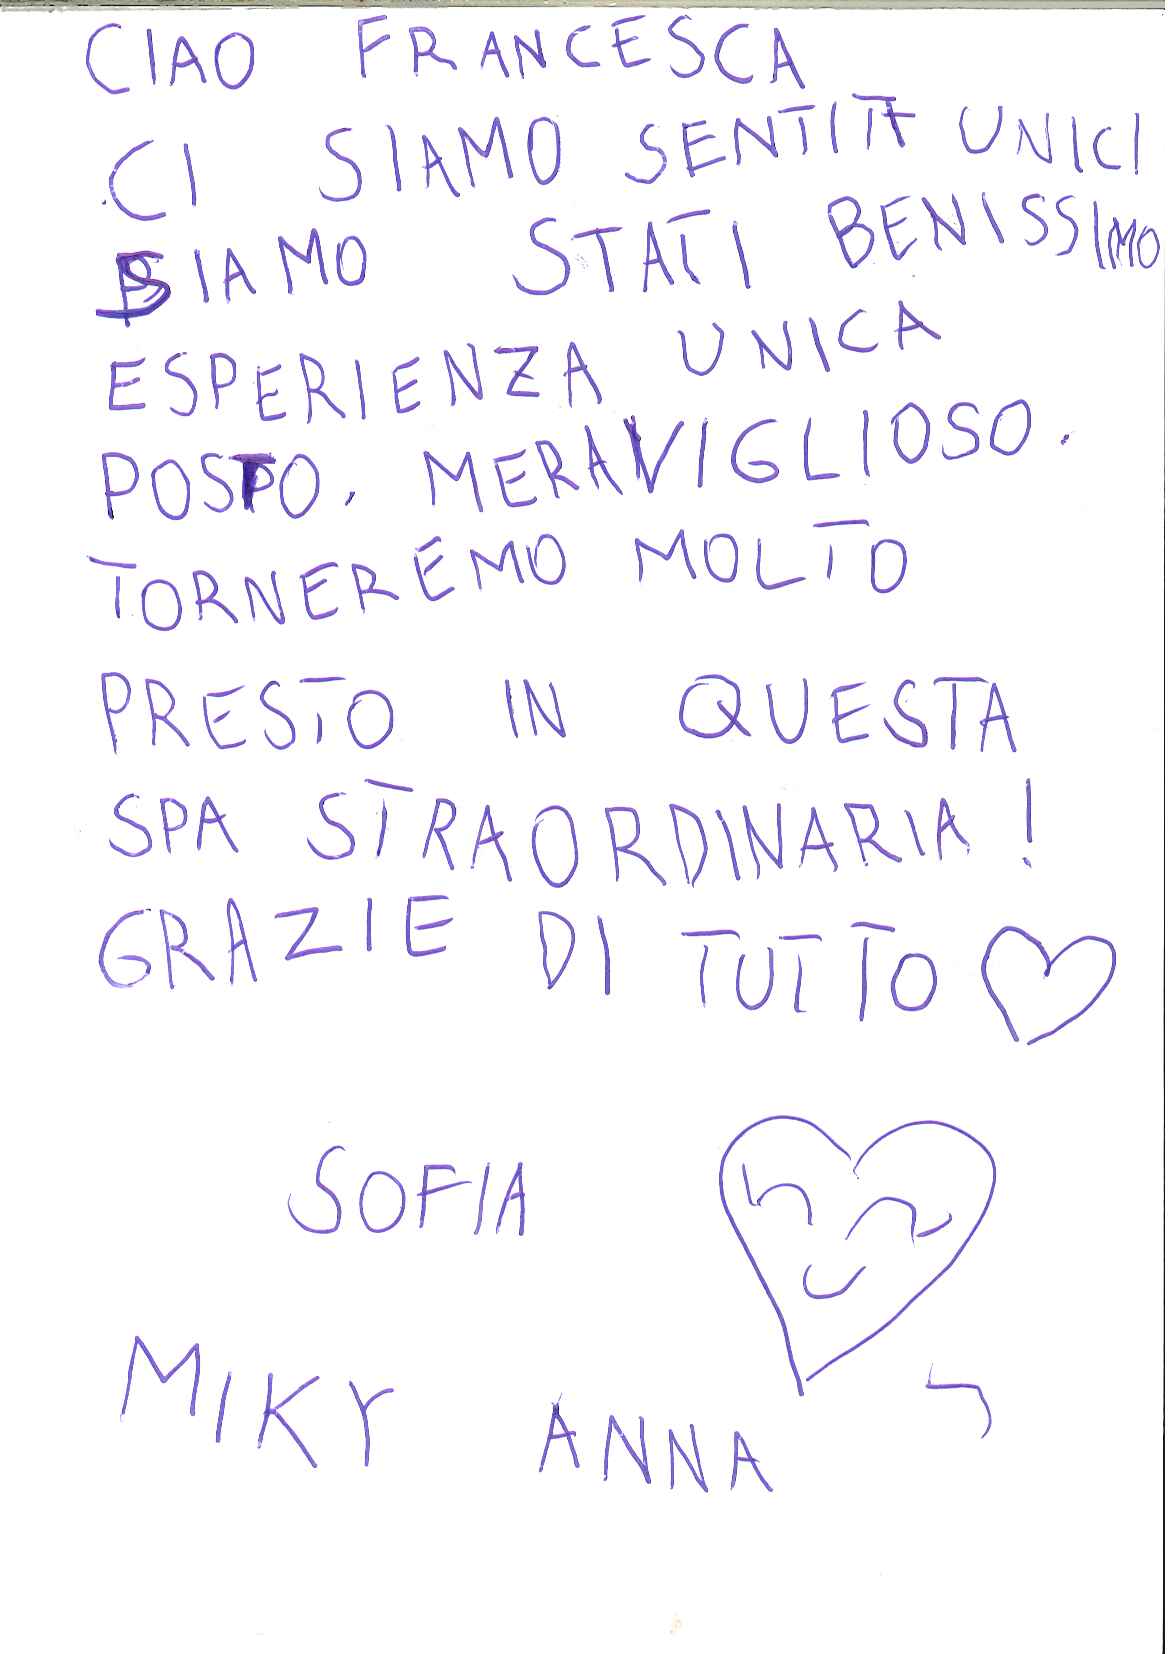 CIAO FRANCESCA
CI SIAMO SENTITI UNICI
SIAMO STATI BENISSIMO
ESPERIENZA UNICA
POSTO. MERAVIGLIOSO.
TORNEREMO MOLTO
PRESTO IN QUESTA
SPA STRAORDINARIA!
GRAZIE DI TUTTO
SOFIA
MIKY ANNA